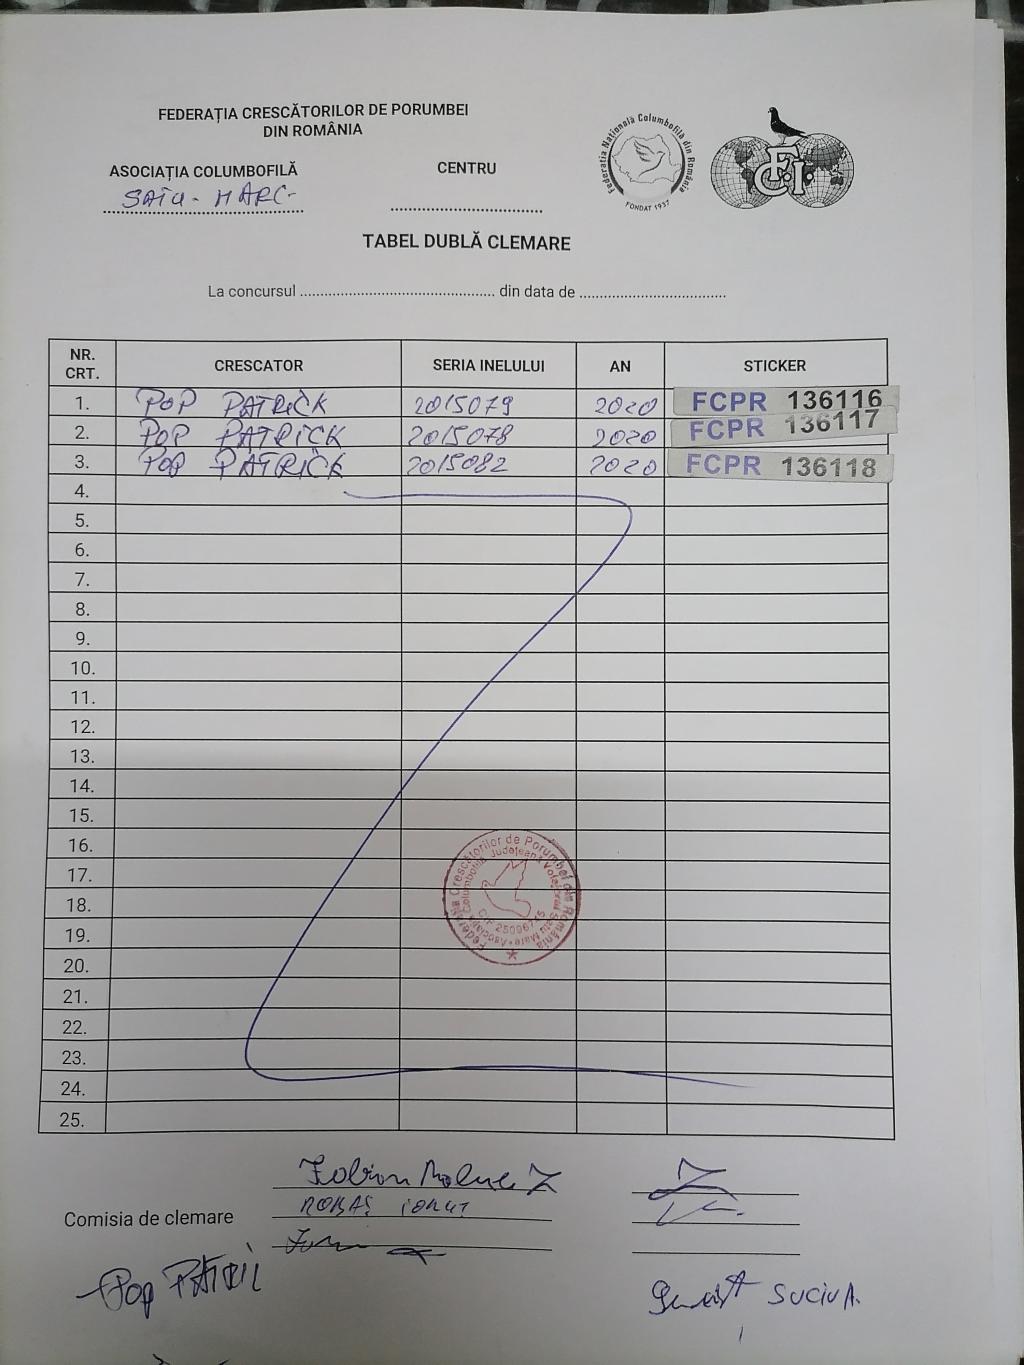 FEDERAȚIA CRESCĂTORILOR DE PORUMBEI
DIN ROMÂNIA
ASOCIAȚIA COLUMBOFILĂ
SATU-MARE
CENTRU
Federația Națională Columbofilă din România
FONDAT 1937
F.C.I.
TABEL DUBLĂ CLEMARE
La concursul ........................ din data de ........................
NR. CRT. CRESCATOR SERIA INELULUI AN STICKER
1. POP PATRICK 2015079 2020 FCPR 136116
2. POP PATRICK 2015078 2020 FCPR 136117
3. POP PATRICK 2015082 2020 FCPR 136118
4.
5.
6.
7.
8.
9.
10.
11.
12.
13.
14.
15.
16.
17.
18.
19.
20.
21.
22.
23.
24.
25.
Federația Crescătorilor de Porumbei din România
Asociația Columbofilă Județeană Voiajorul Satu Mare
CIF 25096745
Comisia de clemare
Pop
SUCIU A.